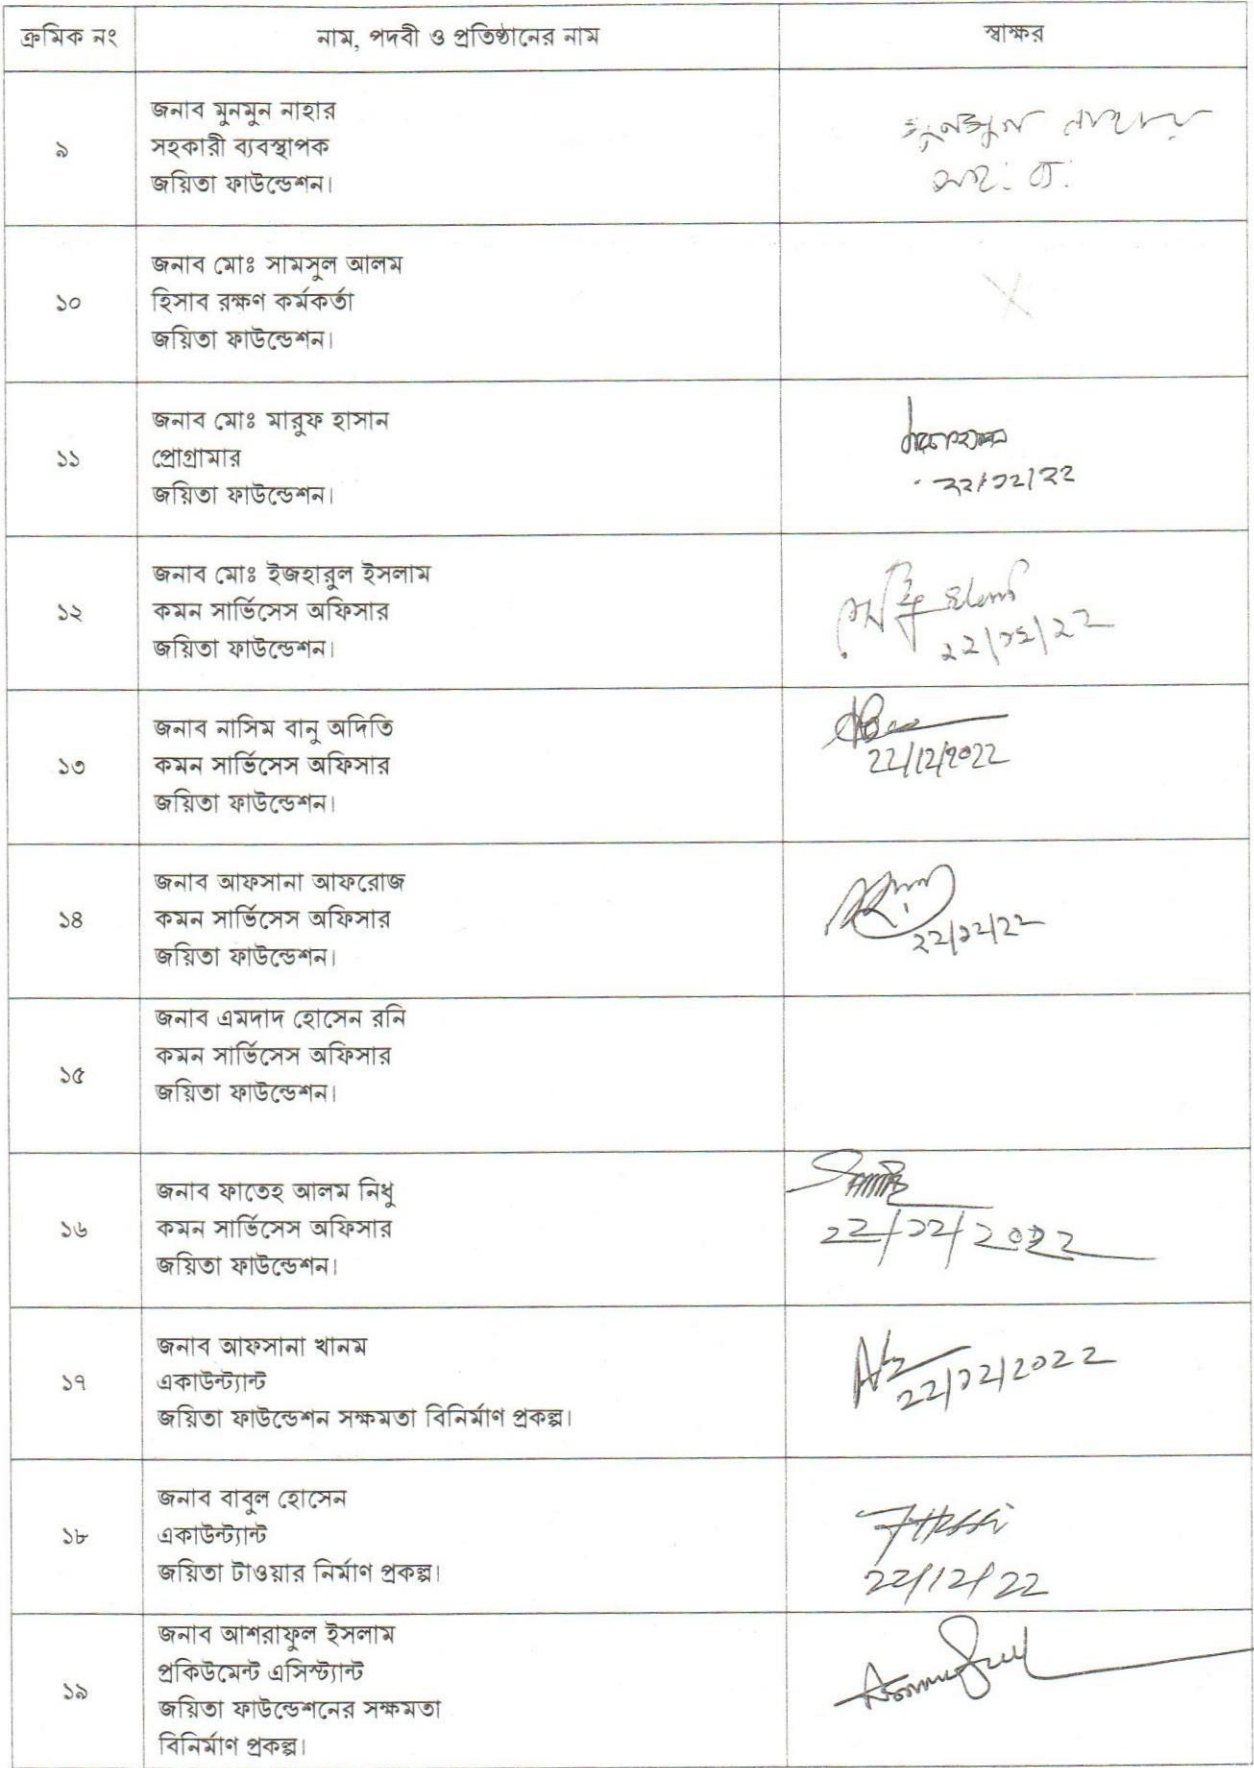 ক্রমিক নং	নাম, পদবী ও প্রতিষ্ঠানের নাম	স্বাক্ষর
জনাব মুনমুন নাহার
৯	সহকারী ব্যবস্থাপক
জয়িতা ফাউন্ডেশন।
মুনমুন নাহার
সহ: ব্য:
জনাব মোঃ সামসুল আলম
১০	হিসাব রক্ষণ কর্মকর্তা
জয়িতা ফাউন্ডেশন।
জনাব মোঃ মারুফ হাসান
১১	প্রোগ্রামার
জয়িতা ফাউন্ডেশন।
২২/১২/২২
জনাব মোঃ ইজহারুল ইসলাম
১২	কমন সার্ভিসেস অফিসার
জয়িতা ফাউন্ডেশন।
২২/১২/২২
জনাব নাসিম বানু অদিতি
১৩	কমন সার্ভিসেস অফিসার
জয়িতা ফাউন্ডেশন।
22/12/2022
জনাব আফসানা আফরোজ
১৪	কমন সার্ভিসেস অফিসার
জয়িতা ফাউন্ডেশন।
২২/১২/২২
জনাব এমদাদ হোসেন রনি
১৫	কমন সার্ভিসেস অফিসার
জয়িতা ফাউন্ডেশন।
জনাব ফাতেহ আলম নিধু
১৬	কমন সার্ভিসেস অফিসার
জয়িতা ফাউন্ডেশন।
২২/১২/২০২২
জনাব আফসানা খানম
১৭	একাউন্ট্যান্ট
জয়িতা ফাউন্ডেশন সক্ষমতা বিনির্মাণ প্রকল্প।
২২/১২/২০২২
জনাব বাবুল হোসেন
১৮	একাউন্ট্যান্ট
জয়িতা টাওয়ার নির্মাণ প্রকল্প।
22/12/22
জনাব আশরাফুল ইসলাম
প্রকিউমেন্ট এসিস্ট্যান্ট
১৯	জয়িতা ফাউন্ডেশনের সক্ষমতা
বিনির্মাণ প্রকল্প।